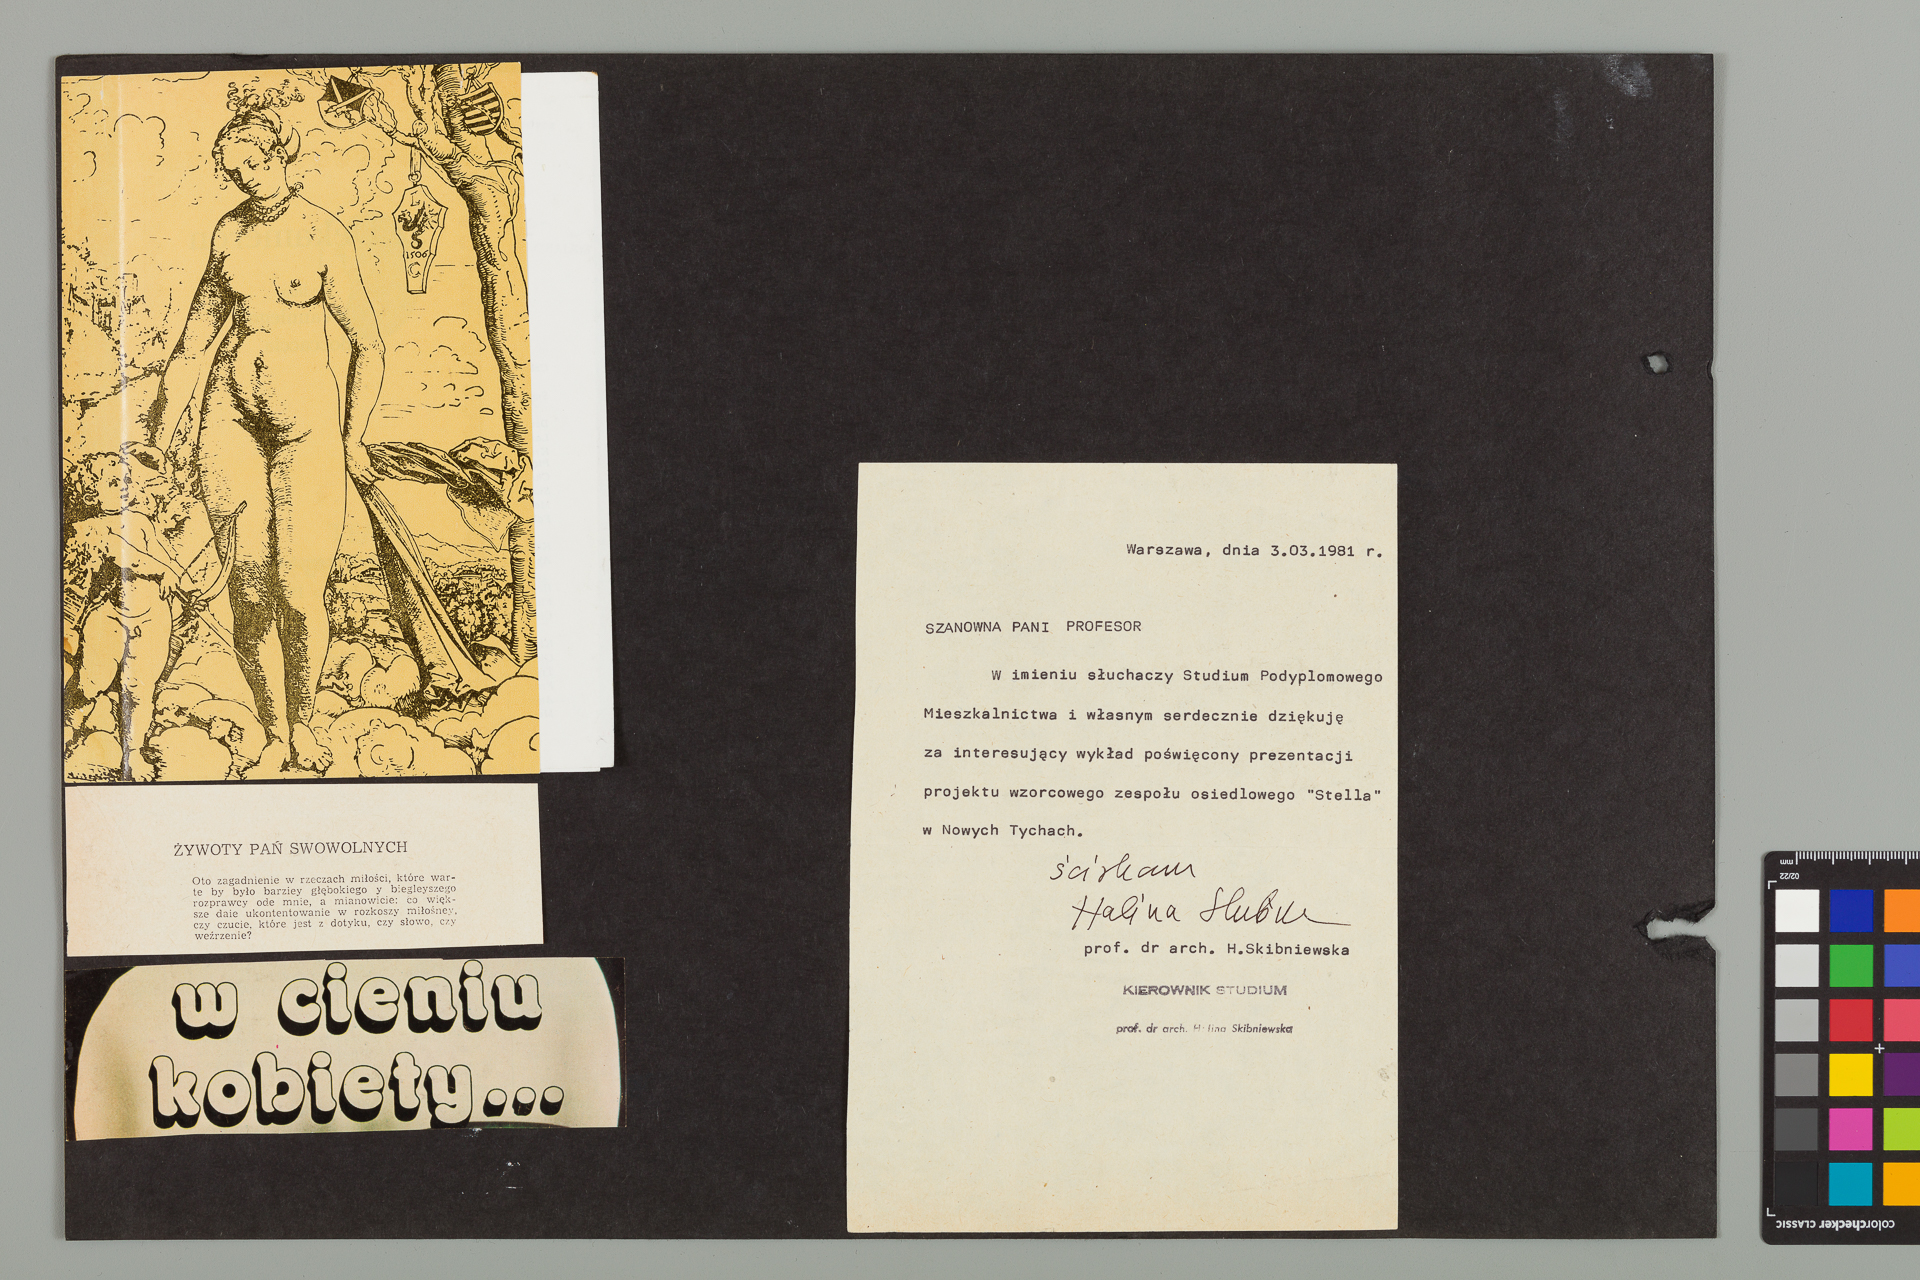 1506
ŻYWOTY PAŃ SWOWOLNYCH
Oto zagadnienie w rzeczach miłości, które war-
te by było barziey głębokiego y biegleyszego
rozprawcy ode mnie, a mianowicie: co więk-
sze daie ukontentowanie w rozkoszy miłosney,
czy czucie, które jest z dotyku, czy słowo, czy
weźrzenie?
w cieniu
kobiety...
Warszawa, dnia 3.03.1981 r.
SZANOWNA PANI PROFESOR
W imieniu słuchaczy Studium Podyplomowego
Mieszkalnictwa i własnym serdecznie dziękuję
za interesujący wykład poświęcony prezentacji
projektu wzorcowego zespołu osiedlowego "Stella"
w Nowych Tychach.
ściskam
Halina Skibn
prof. dr arch. H.Skibniewska
KIEROWNIK STUDIUM
prof. dr arch. Halina Skibniewska
mm
02/22
colorchecker CLASSIC